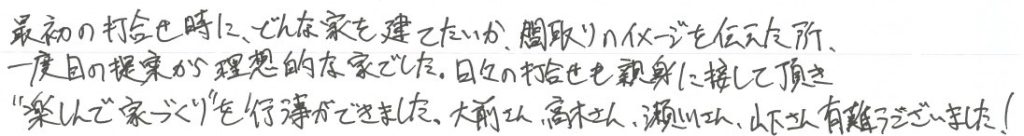 最初の打合せ時に、どんな家を建てたいか、間取りのイメージを伝えた所、
一度目の提案から理想的な家でした。日々の打合せも親身に接して頂き
"楽しんで家づくり"を行う事ができました。大前さん、高木さん、瀬川さん、山下さん有難うございました！